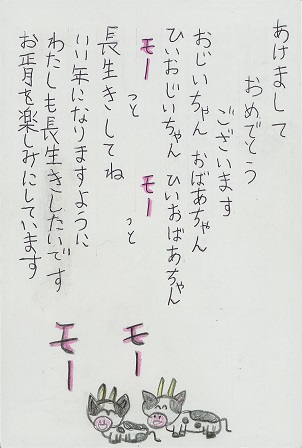 あけまして
おめでとう
ございます
おじいちゃん おばあちゃん
ひいおじいちゃん ひいおばあちゃん
モーっと モーっと
長生きしてね
いい年になりますように
わたしも長生きしたいです
お正月を楽しみにしています
モー
モー